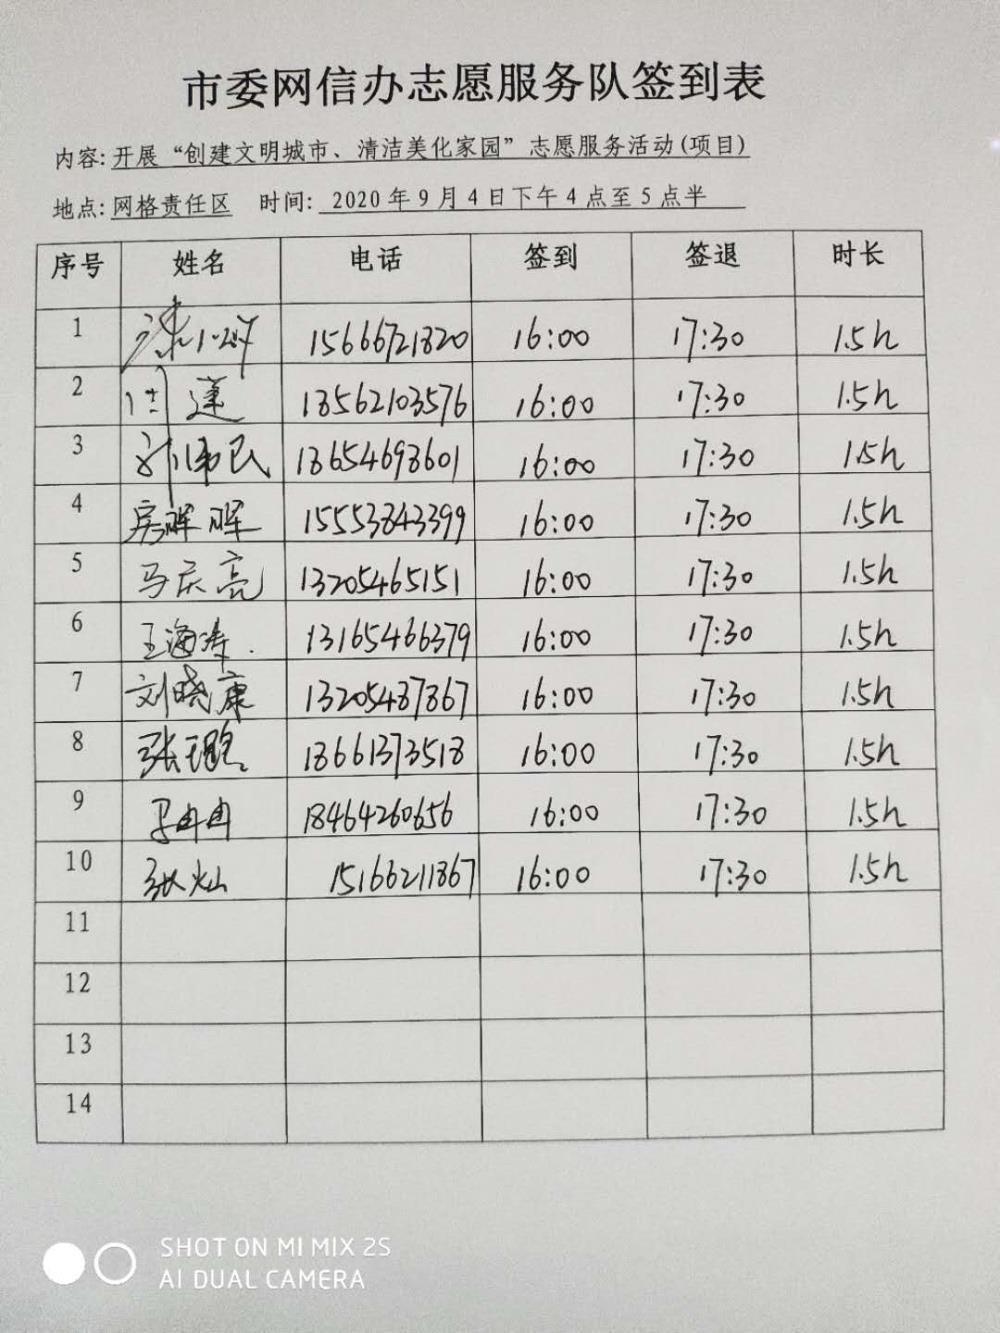 市委网信办志愿服务队签到表
内容:开展“创建文明城市、清洁美化家园”志愿服务活动(项目)
地点:网格责任区 时间: 2020年9月4日下午4点至5点半
序号 姓名 电话 签到 签退 时长
1 15666721820 16:00 17:30 1.5h
2 18562103576 16:00 17:30 1.5h
3 18654698601 16:00 17:30 1.5h
4 房晖晖 15553843399 16:00 17:30 1.5h
5 马庆亮 13205465151 16:00 17:30 1.5h
6 王海涛. 13165466379 16:00 17:30 1.5h
7 刘晓康 13205487867 16:00 17:30 1.5h
8 张 18661373518 16:00 17:30 1.5h
9 18464260656 16:00 17:30 1.5h
10 张灿 15166211867 16:00 17:30 1.5h
11
12
13
14
SHOT ON MI MIX 2S
AI DUAL CAMERA